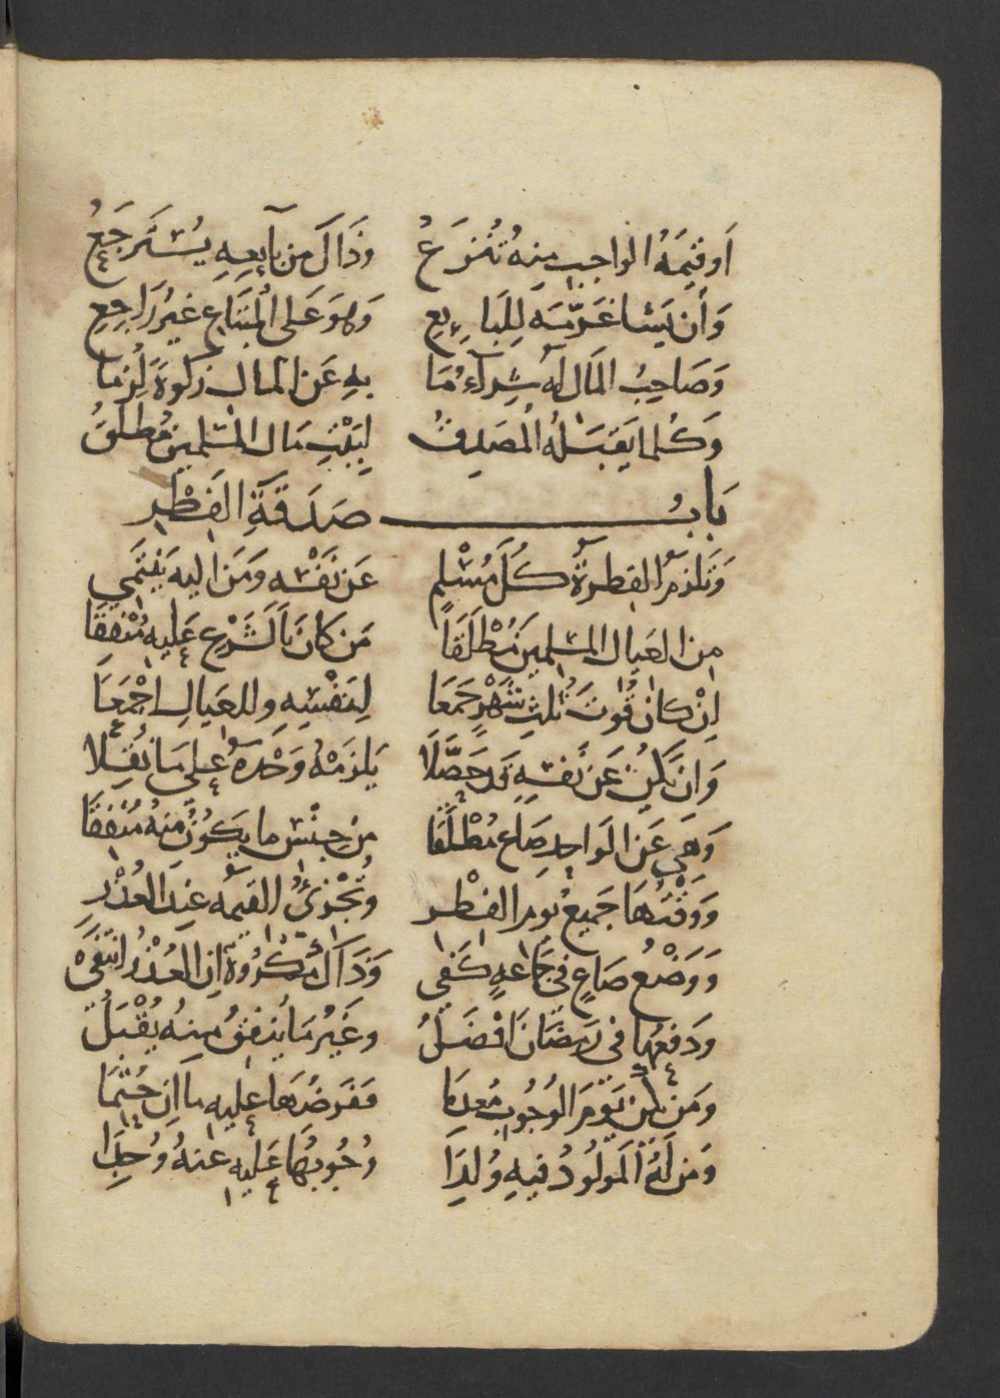 اَو قيمَةُ الواجبِ مِنهُ تُنْزَعُ وَذَاكَ من بآيعِهِ يُسْتَرجَعُ
وَأن يَشا غَرّمَه لِلبَايِعِ وَهوَ عَلى المُبتَاعِ غيرُ رَاجِعِ
وَصَاحِبُ المَال لَهُ شِرآءُ مَا بهِ عَن المال زكوةً لَزِمَا
وَكُلما يَقبَلُهُ المُصَدِقُ لِبَيْتِ مَال المسْلمينَ مُطلَقُ
بَابُ صَدَقَةِ الفِطْرِ
وَتَلزمُ الفطرةُ كُلَّ مُسْلمِ عَن نَفْسِه وَمَن اليه يَنْتَمي
مِن العَيال المسْلمينَ مُطْلَقَاً مَن كانَ بالشَرْعِ عَليه مُنْفِقَا
اِنْ كان قُوتَ ثُلثِ شَهْرٍ جَمَعَا لِنَفْسِهِ وللعَيالِ اجْمَعَا
وَان يَكُن عَن نَفسِهِ قد حَصَّلَا يَلزَمْهُ وَحْدَهُ على مَا نُقِلا
وَهيَ عَن الوَاحِدِ صَاع مُطْلَقَا مِن جِنْسِ ما يَكُونُ مِنهُ مُنْفِقَا
وَوَقْتُهَا جَميعُ يومِ الفِطْرِ وتُجْزئُ القيمَه عِندَ العُذْرِ
وَوَضْعُ صَاعٍ في جَمَاعهٍ كَفى وَذَاكَ مَكْرُوهٌ اِن العُذْرُ انتَفَى
وَدَفعُها في رَمَضَانَ افْضَلُ وغَيْرُ مَا يُنفِقُ مِنهُ يُقْبَلُ
ومَن يَكُن يَوْمَ الوُجُوبِ مُعدِمَا فَفَرضُهَا عَليهِ مآ اِن حُتِمَا
وَمَن لَهُ المَولُودُ فيهِ وُلِدَا وُجُوبُهَا عَليه عنهُ وُجِدَا